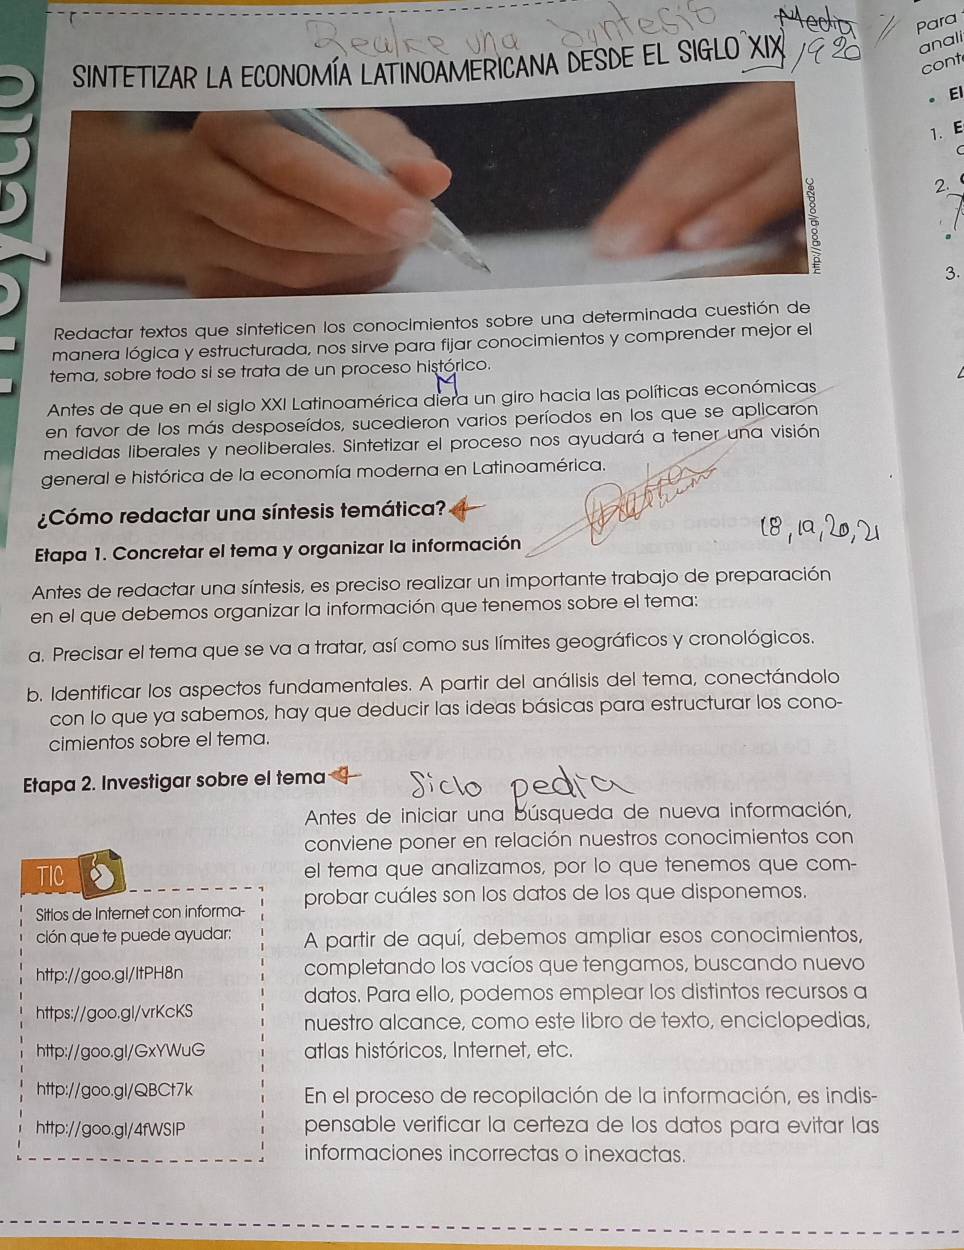 Realice una Sintesis Media 1920
SINTETIZAR LA ECONOMÍA LATINOAMERICANA DESDE EL SIGLO XIX
http://goo.gl/ood2eC
Redactar textos que sinteticen los conocimientos sobre una determinada cuestión de
manera lógica y estructurada, nos sirve para fijar conocimientos y comprender mejor el
tema, sobre todo si se trata de un proceso histórico.
M
Antes de que en el siglo XXI Latinoamérica diera un giro hacia las políticas económicas
en favor de los más desposeídos, sucedieron varios períodos en los que se aplicaron
medidas liberales y neoliberales. Sintetizar el proceso nos ayudará a tener una visión
general e histórica de la economía moderna en Latinoamérica.
¿Cómo redactar una síntesis temática?
18, 19, 20, 21
Etapa 1. Concretar el tema y organizar la información
Antes de redactar una síntesis, es preciso realizar un importante trabajo de preparación
en el que debemos organizar la información que tenemos sobre el tema:
a. Precisar el tema que se va a tratar, así como sus límites geográficos y cronológicos.
b. Identificar los aspectos fundamentales. A partir del análisis del tema, conectándolo
con lo que ya sabemos, hay que deducir las ideas básicas para estructurar los cono-
cimientos sobre el tema.
Etapa 2. Investigar sobre el tema
Siclo pedia
Antes de iniciar una búsqueda de nueva información,
conviene poner en relación nuestros conocimientos con
el tema que analizamos, por lo que tenemos que com-
probar cuáles son los datos de los que disponemos.
A partir de aquí, debemos ampliar esos conocimientos,
completando los vacíos que tengamos, buscando nuevo
datos. Para ello, podemos emplear los distintos recursos a
nuestro alcance, como este libro de texto, enciclopedias,
atlas históricos, Internet, etc.
En el proceso de recopilación de la información, es indis-
pensable verificar la certeza de los datos para evitar las
informaciones incorrectas o inexactas.
TIC
Sitios de Internet con informa-
ción que te puede ayudar:
http://goo.gl/ltPH8n
https://goo.gl/vrKcKS
http://goo.gl/GxYWuG
http://goo.gl/QBCt7k
http://goo.gl/4fWSIP
Para
anali
cont
• El
1. E
2.
3.